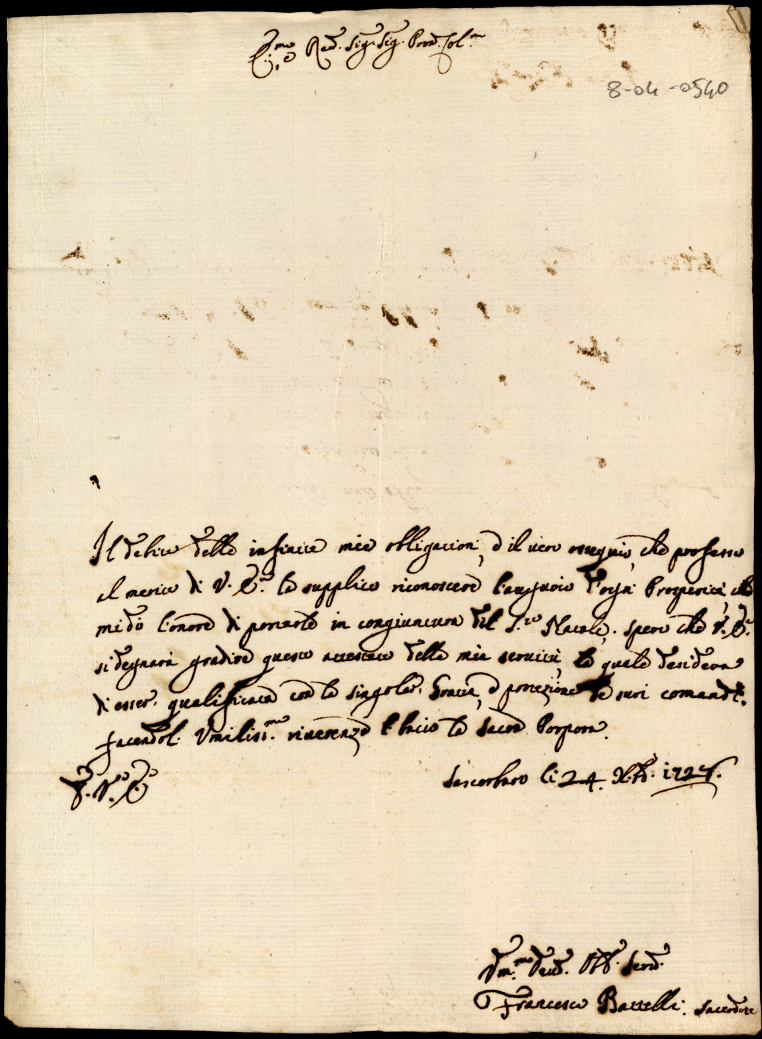 E.mo Red. Sig. Sig. Pron. Col.mo
8-04-0540
Il debito delle infinite mie obligationi, e il vero ossequio, che professo
al merito di V. E.za la supplico riconoscere l'augurio d'ogni Prosperità, che
mi dò l'onore di portarle in congiuntura del S.to Natale, spero che V. E.
si degnarà gradire questo attestato della mia servitù, la quale desidera
di esser qualificata con la singolar Gratia, e protezione de suoi comandi.
facendol. Umiliss.ma riverenza l bacio la Sacra Porpora.
D. V. E.
Sascorbaro li 24 Xb. 1727.
Um.mo Dev. Obb. Serv.
Francesco Battelli Sacerdote